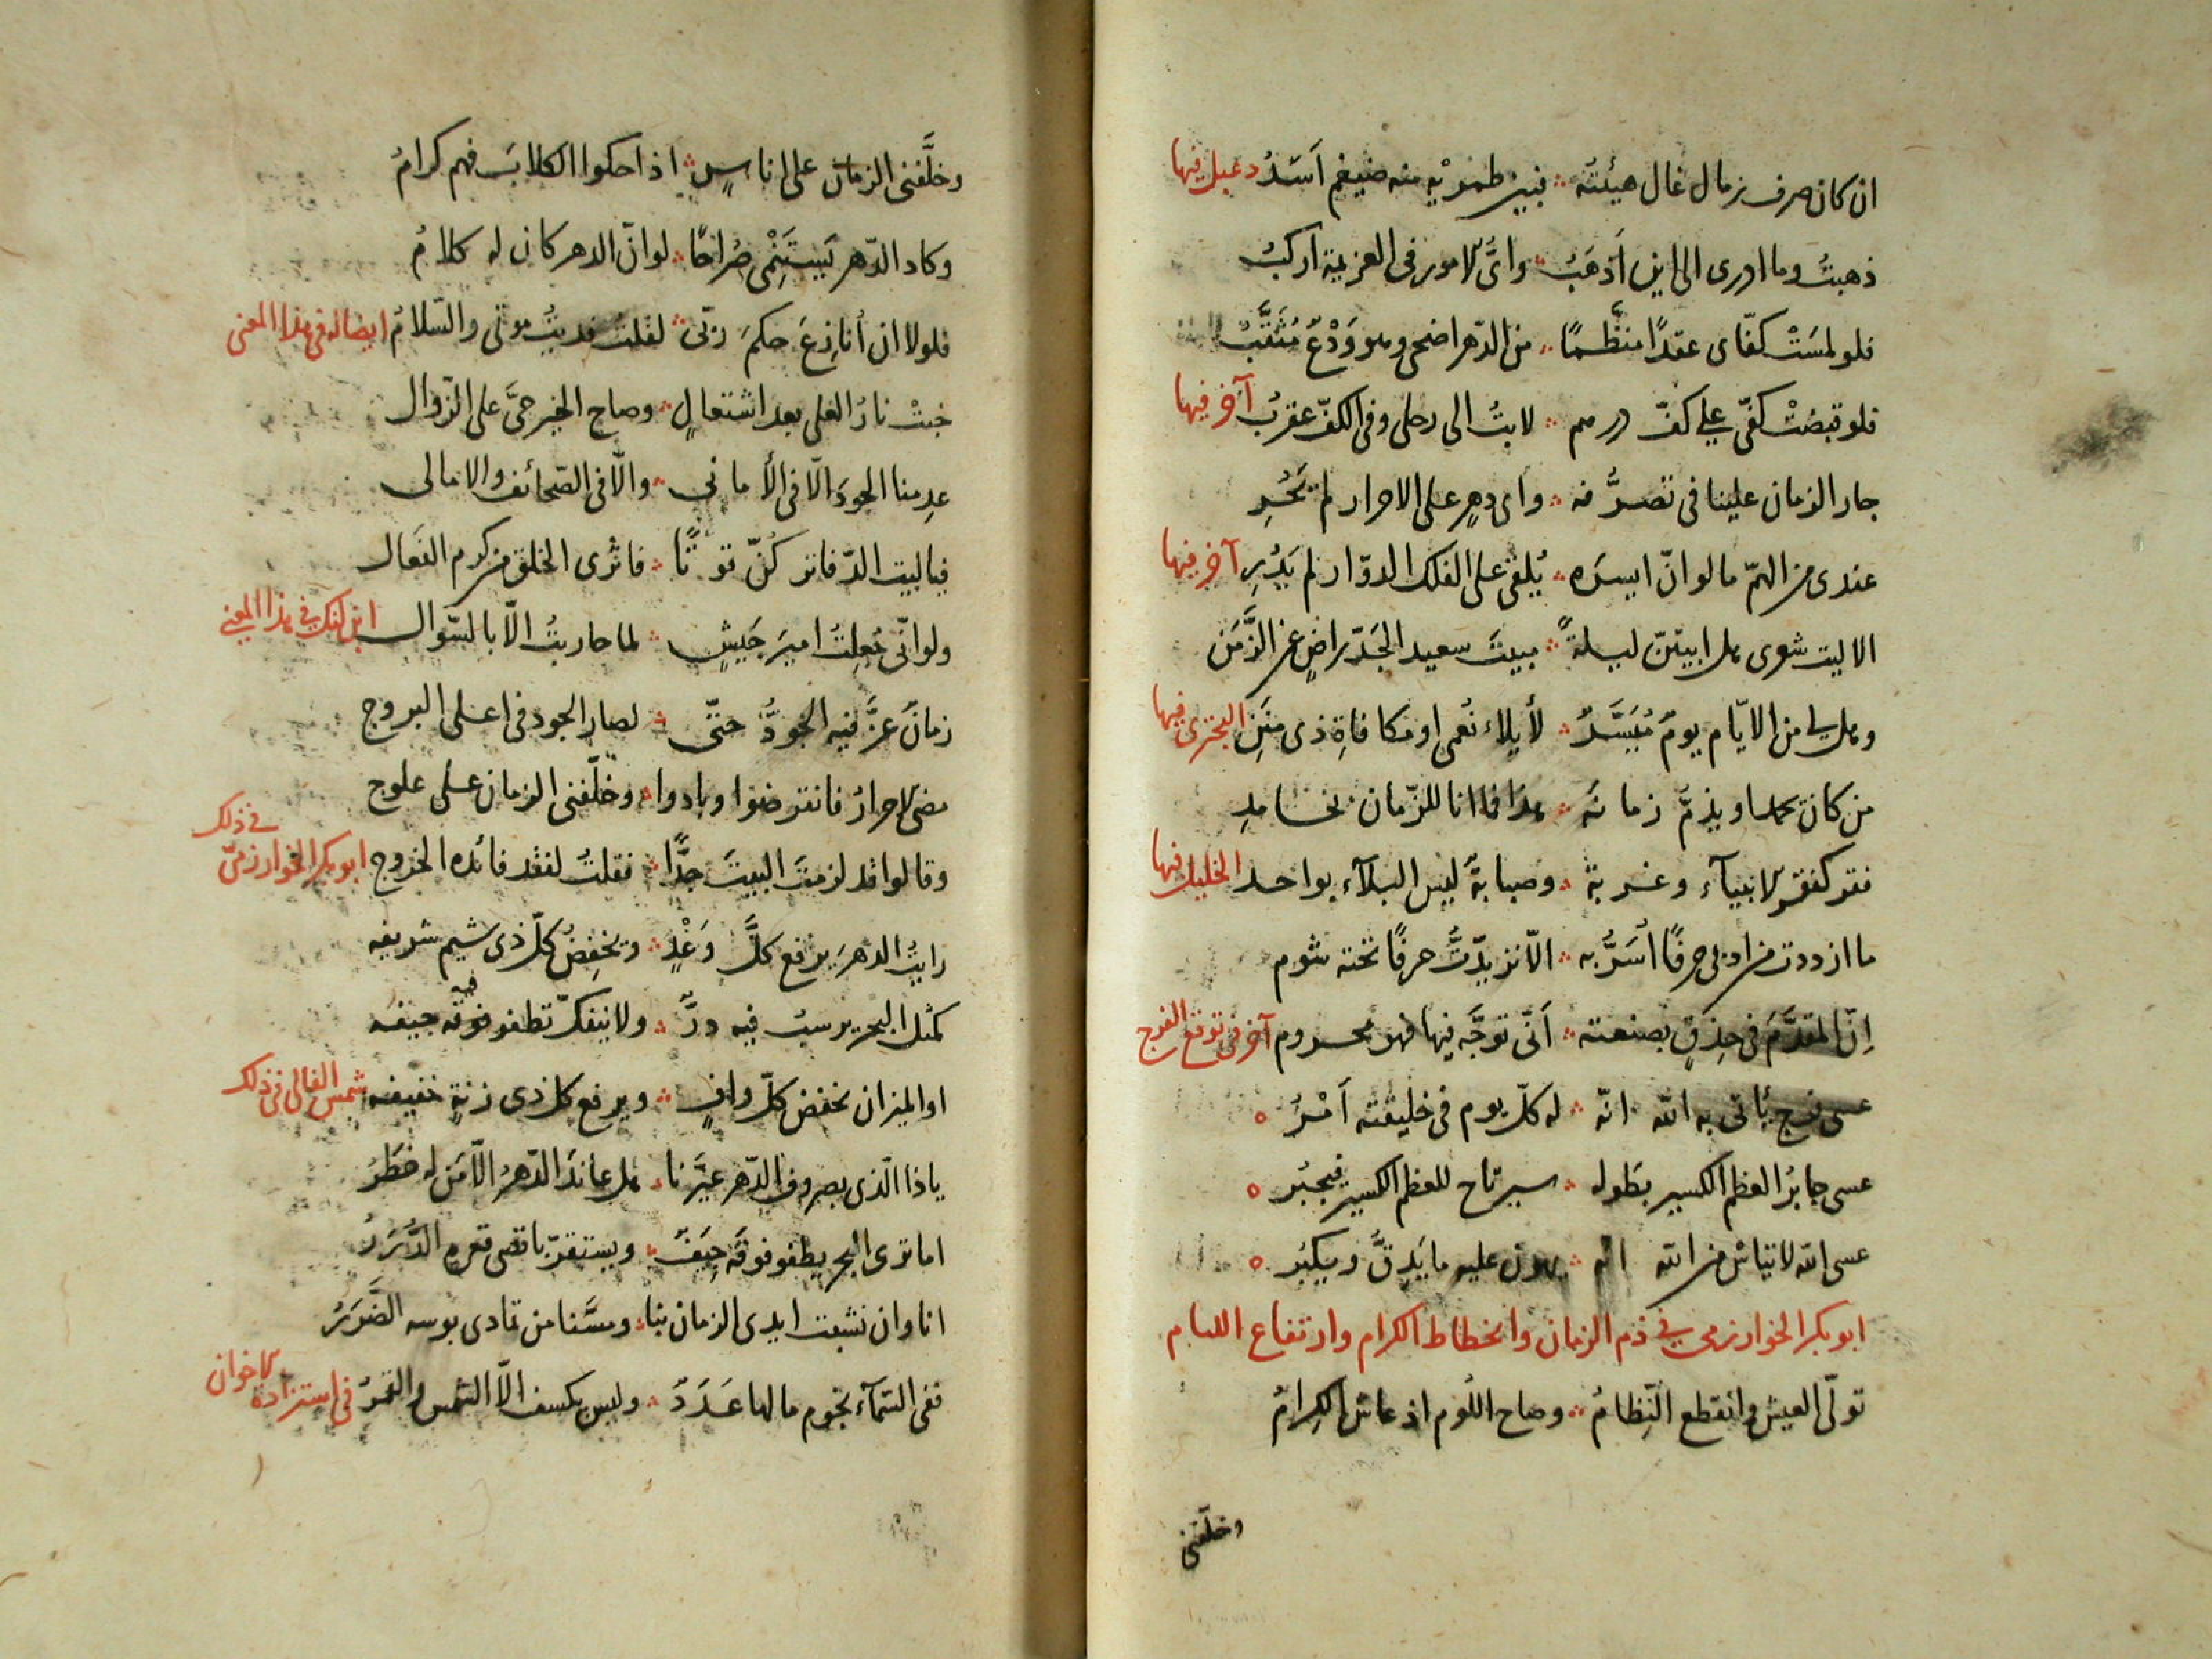 ان كان صرف زمال غال هيئته ؞ فبين طمريه منه ضيغم اَسَدُ دعبل فيها
ذهبتُ وما ادرى الى اين اَذهَبُ ؞ واىَّ الامور فى العزيمة اركبُ
فلو لمسَتْ كفّاى عقدًا منظَّمًا ؞ من الدّهر اضحى وهو وَدْعٌ مُثَقَّبُ
فلو قبضتْ كفّى على كفّ درهم ؞ لابتُ الى رحلى وفى الكفّ عقربُ آخر فيها
جار الزمان علينا فى تصرُّفه ؞ واى دهرٍ على الاحرار لم يَجُرِ
عندى من الهمّ ما لو انّ ايسره ؞ يُلقى على الفلك الدوّار لم يَدُرِ آخر فيها
الا ليت شعرى هل ابيتنّ ليلةً ؞ مبيتَ سعيد الجَدّ راضٍ عن الزَّمَن
وهل لى من الايّام يومٌ مُيَسَّرٌ ؞ لأيلاء نُعمى او مكافاةِ ذى مِنَنِ البحترى فيها
من كان يحمد او يذمّ زمانه ؞ هذا فما انا للزّمان بحامدِ
فقر كفقر الانبيآء وغربة ؞ وصبابةٌ ليس البلآء بواحد الخليل فيها
ما ازددت من ادبى حرفًا اُسَرُّ به ؞ الّا تزيّدتُّ حرفًا تحته شوم
اِنّ المقدَّمَ فى حِذقٍ بصنعته ؞ اَنّى توجَّه فيها فهو محروم آخر فى توقع الفرج
عسى فرج يأتى به الله انّه ؞ له كلّ يوم فى خليقته اَمْرُ ه
عسى جابرُ العظم الكسير بطوله ؞ سيرتاح للعظم الكسير فيجبُر ه
عسى الله لا تيأس من الله انه ؞ يهون عليه ما يَدِقّ ويكبُر ه
ابو بكر الخوارزمى فى ذم الزمان وانحطاط الكرام وارتفاع اللئام
تولّى العيش وانقطع النِّظامُ ؞ وصاح اللُوم اذ عاش الكِرامُ
وخلّفنى
وخلَّفنى الزمان على اناسٍ ؞ اذا حكوا الكلابَ فهم كرامُ
وكاد الدّهر صُراحًا ؞ لو انّ الدهر كان له كلامُ
فلولا ان أنازعَ حكمَ ربّى ؞ لقلتُ فديتُ موتى والسّلامُ ايضا له فى هذا المعنى
خبتْ نارُ العلى بعد اشتعالٍ ؞ وصاح الخير حىَّ على الزّوال
عدِمنا الجودَ الّا فى الأمانى ؞ والّا فى الصّحائف والامالى
فياليت الدّفاتر كُنّ قوتًا ؞ فاثرى الخلق من كرم الفعال
ولو انّى جُعِلتُ اميرَ جَيشٍ ؞ لما حاربتُ الّا بالسّوال ابن لنكك فى هذا المعنى
زمانٌ عزَّ فيه الجودُ حتّى ؞ لصار الجود فى اعلى البروج
مضى الاحرارُ فانقرضوا وبادوا ؞ وخلّفنى الزمان على علوج
وقالوا قد لزمتَ البيتَ جدًّا ؞ فقلتُ لفقد فائده الخروج ابو بكر الخوارزمىّ فى ذلك
رايتُ الدهرَ يرفع كلَّ وَغْدٍ ؞ ويخفِضُ كلّ ذى شيم شريفه
كمثل البحر يرسبُ فيه درٌّ ؞ ولا ينفكّ تطفو فوقه جيفه
او الميزان يخفض كلّ وافٍ ؞ ويرفع كل ذى زنةٍ خفيفه شمس المعالى فى ذلك
ياذا الّذى بصروف الدّهر عيَّرنا ؞ هل عاندَ الدّهرُ الّا مَن له خطَرُ
اما ترى البحر يطفو فوقَه جِيَفٌ ؞ ويستقرّ باقصى قعرهِ الدُّرَرُ
انا وان نشبت ايدى الزمان بنا ؞ ومسَّنا من تمادى بوسه الضَّرَرُ
ففى السّمآء نجوم ما لها عَدَدٌ ؞ وليس يكسف الّا الشمس والقمرُ فى استزادة الاخوان